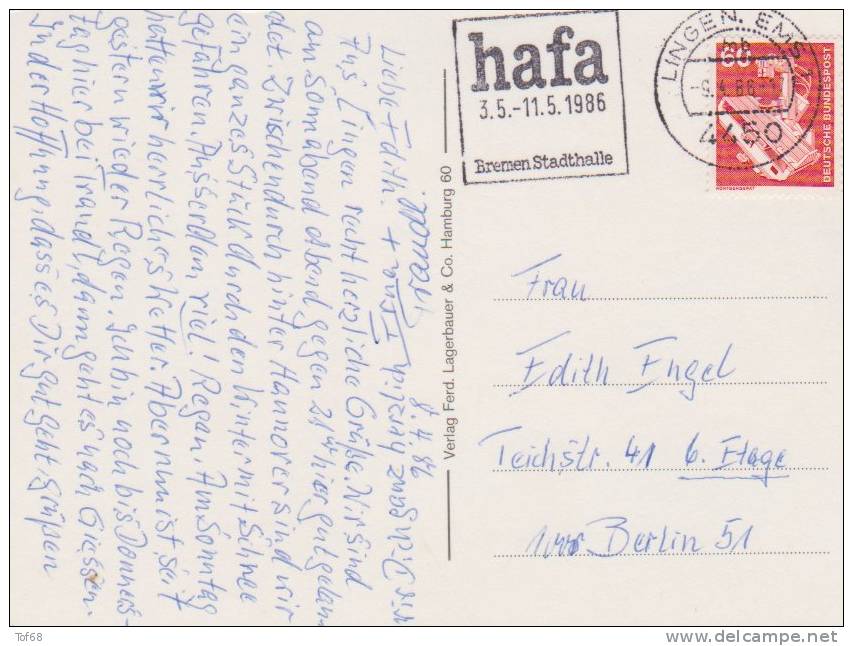 8.4.86
Liebe Edith.
Aus Lingen recht herzliche Grüße. Wir sind
am Sonnabend abend gegen 21 hier gut gelan-
det. Zwischendurch hinter Hannover sind wir
ein ganzes Stück durch den Winter mit Schnee
gefahren. Ausserdem viel! Regen. Am Sonntag
hatten wir herrliches Wetter. Aber nun ist seit
gestern wieder Regen. Ich bin noch bis Donners-
tag hier bei Traudl, dann geht es nach Giessen.
In der Hoffnung, dass es Dir gut geht, grüßen
wir Dich ganz herzlich
Verlag Ferd. Lagerbauer & Co. Hamburg 60
hafa
3.5.-11.5.1986
Bremen Stadthalle
LINGEN, EMS 1
-9.4.86
4450
60
DEUTSCHE BUNDESPOST
RÖNTGENGERÄT
Frau
Edith Engel
Teichstr. 41 6. Etage
1000 Berlin 51
Tof68
delcampe.net